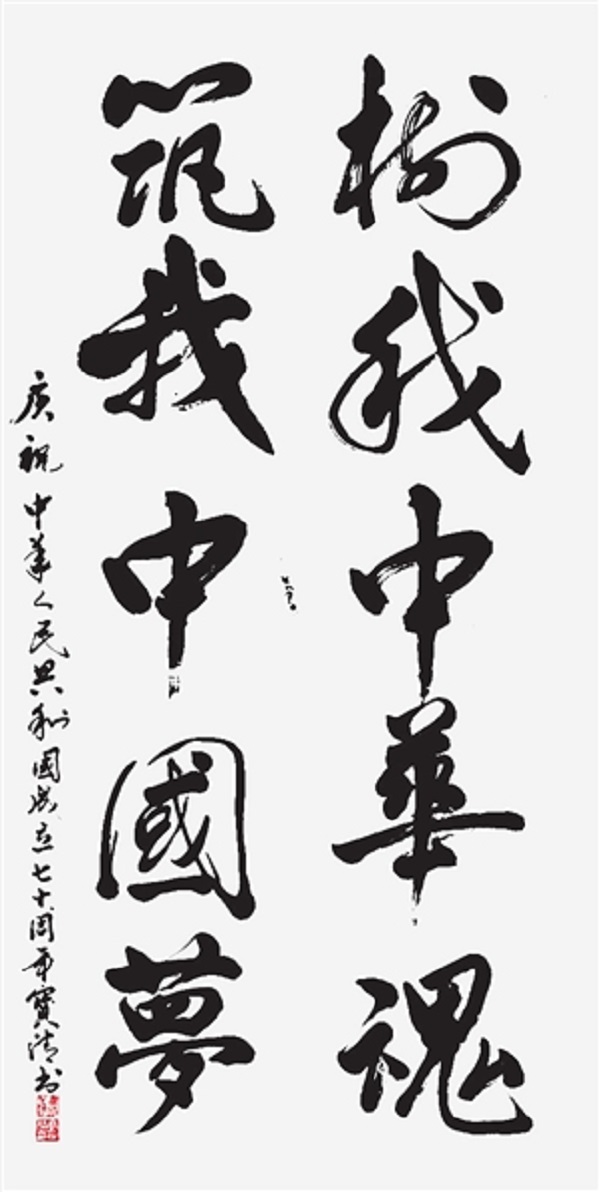 树我中華魂
筑我中國夢
庆祝中华人民共和國成立七十周年寶清书